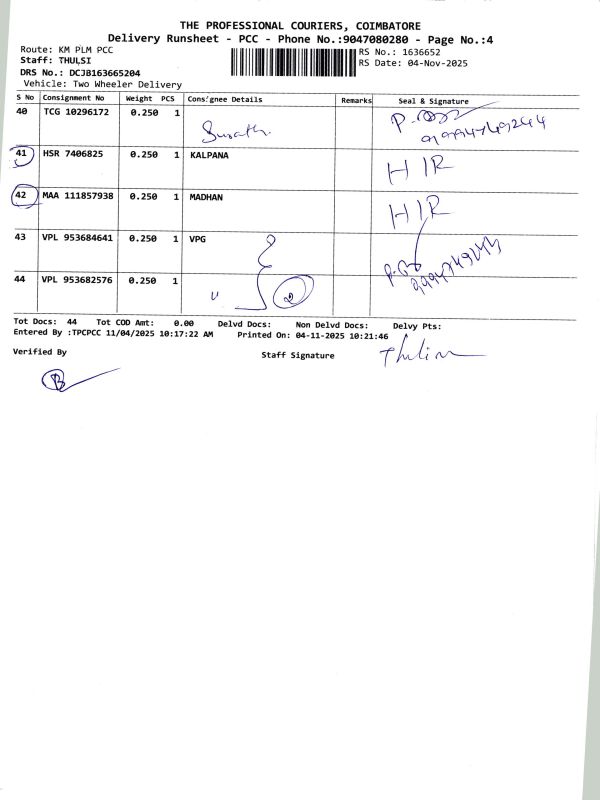 THE PROFESSIONAL COURIERS, COIMBATORE
Delivery Runsheet - PCC - Phone No.:9047080280 - Page No.:4
Route: KM PLM PCC
RS No.: 1636652
Staff: THULSI
RS Date: 04-Nov-2025
DRS No.: DCJB163665204
Vehicle: Two Wheeler Delivery
S No Consignment No Weight PCS Consignee Details Remarks Seal & Signature
40 TCG 10296172 0.250 1
41 HSR 7406825 0.250 1 KALPANA H/R
42 MAA 111857938 0.250 1 MADHAN H/R
43 VPL 953684641 0.250 1 VPG
44 VPL 953682576 0.250 1 " 2
Tot Docs: 44 Tot COD Amt: 0.00 Delvd Docs: Non Delvd Docs: Delvy Pts:
Entered By :TPCPCC 11/04/2025 10:17:22 AM Printed On: 04-11-2025 10:21:46
Verified By Staff Signature
B